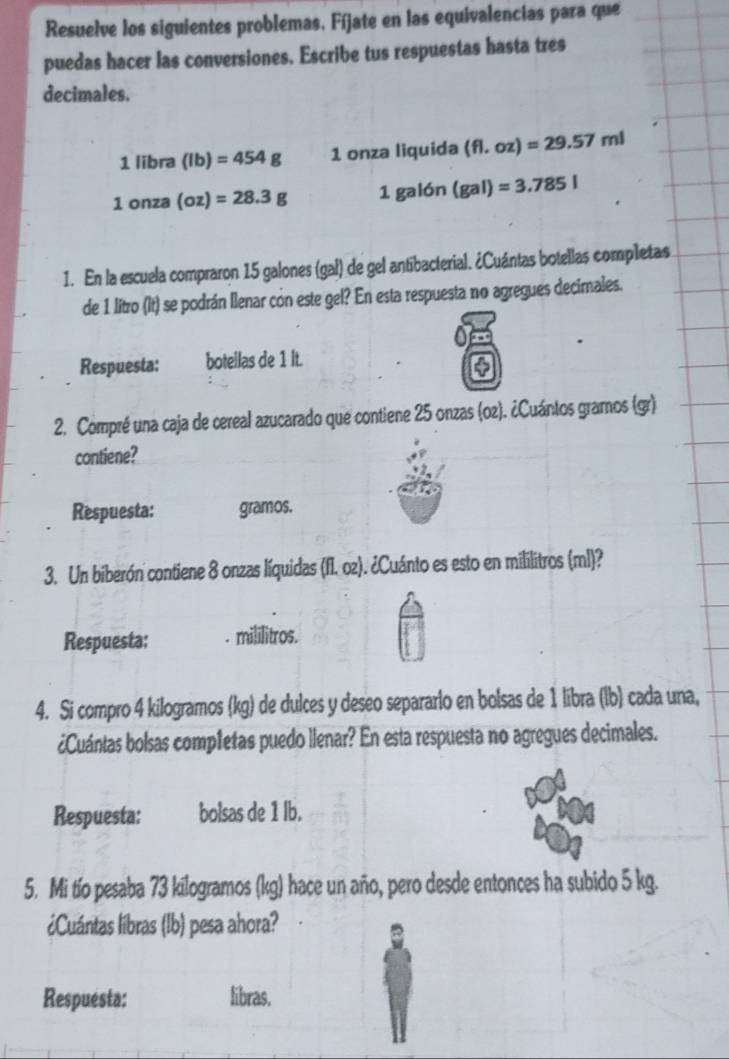 Resuelve los siguientes problemas. Fíjate en las equivalencias para que
puedas hacer las conversiones. Escribe tus respuestas hasta tres
decimales.
1 libra (lb) = 454 g 1 onza liquida (fl. oz) = 29.57 ml
1 onza (oz) = 28.3 g 1 galón (gal) = 3.785 l
1. En la escuela compraron 15 galones (gal) de gel antibacterial. ¿Cuántas botellas completas
de 1 litro (lt) se podrán llenar con este gel? En esta respuesta no agregues decimales.
Respuesta: botellas de 1 lt.
2. Compré una caja de cereal azucarado que contiene 25 onzas (oz). ¿Cuántos gramos (gr)
contiene?
Respuesta: gramos.
3. Un biberón contiene 8 onzas líquidas (fl. oz). ¿Cuánto es esto en mililitros (ml)?
Respuesta: mililitros.
4. Si compro 4 kilogramos (kg) de dulces y deseo separarlo en bolsas de 1 libra (lb) cada una,
¿Cuántas bolsas completas puedo llenar? En esta respuesta no agregues decimales.
Respuesta: bolsas de 1 lb.
5. Mi tío pesaba 73 kilogramos (kg) hace un año, pero desde entonces ha subido 5 kg.
¿Cuántas libras (lb) pesa ahora?
Respuesta: libras.